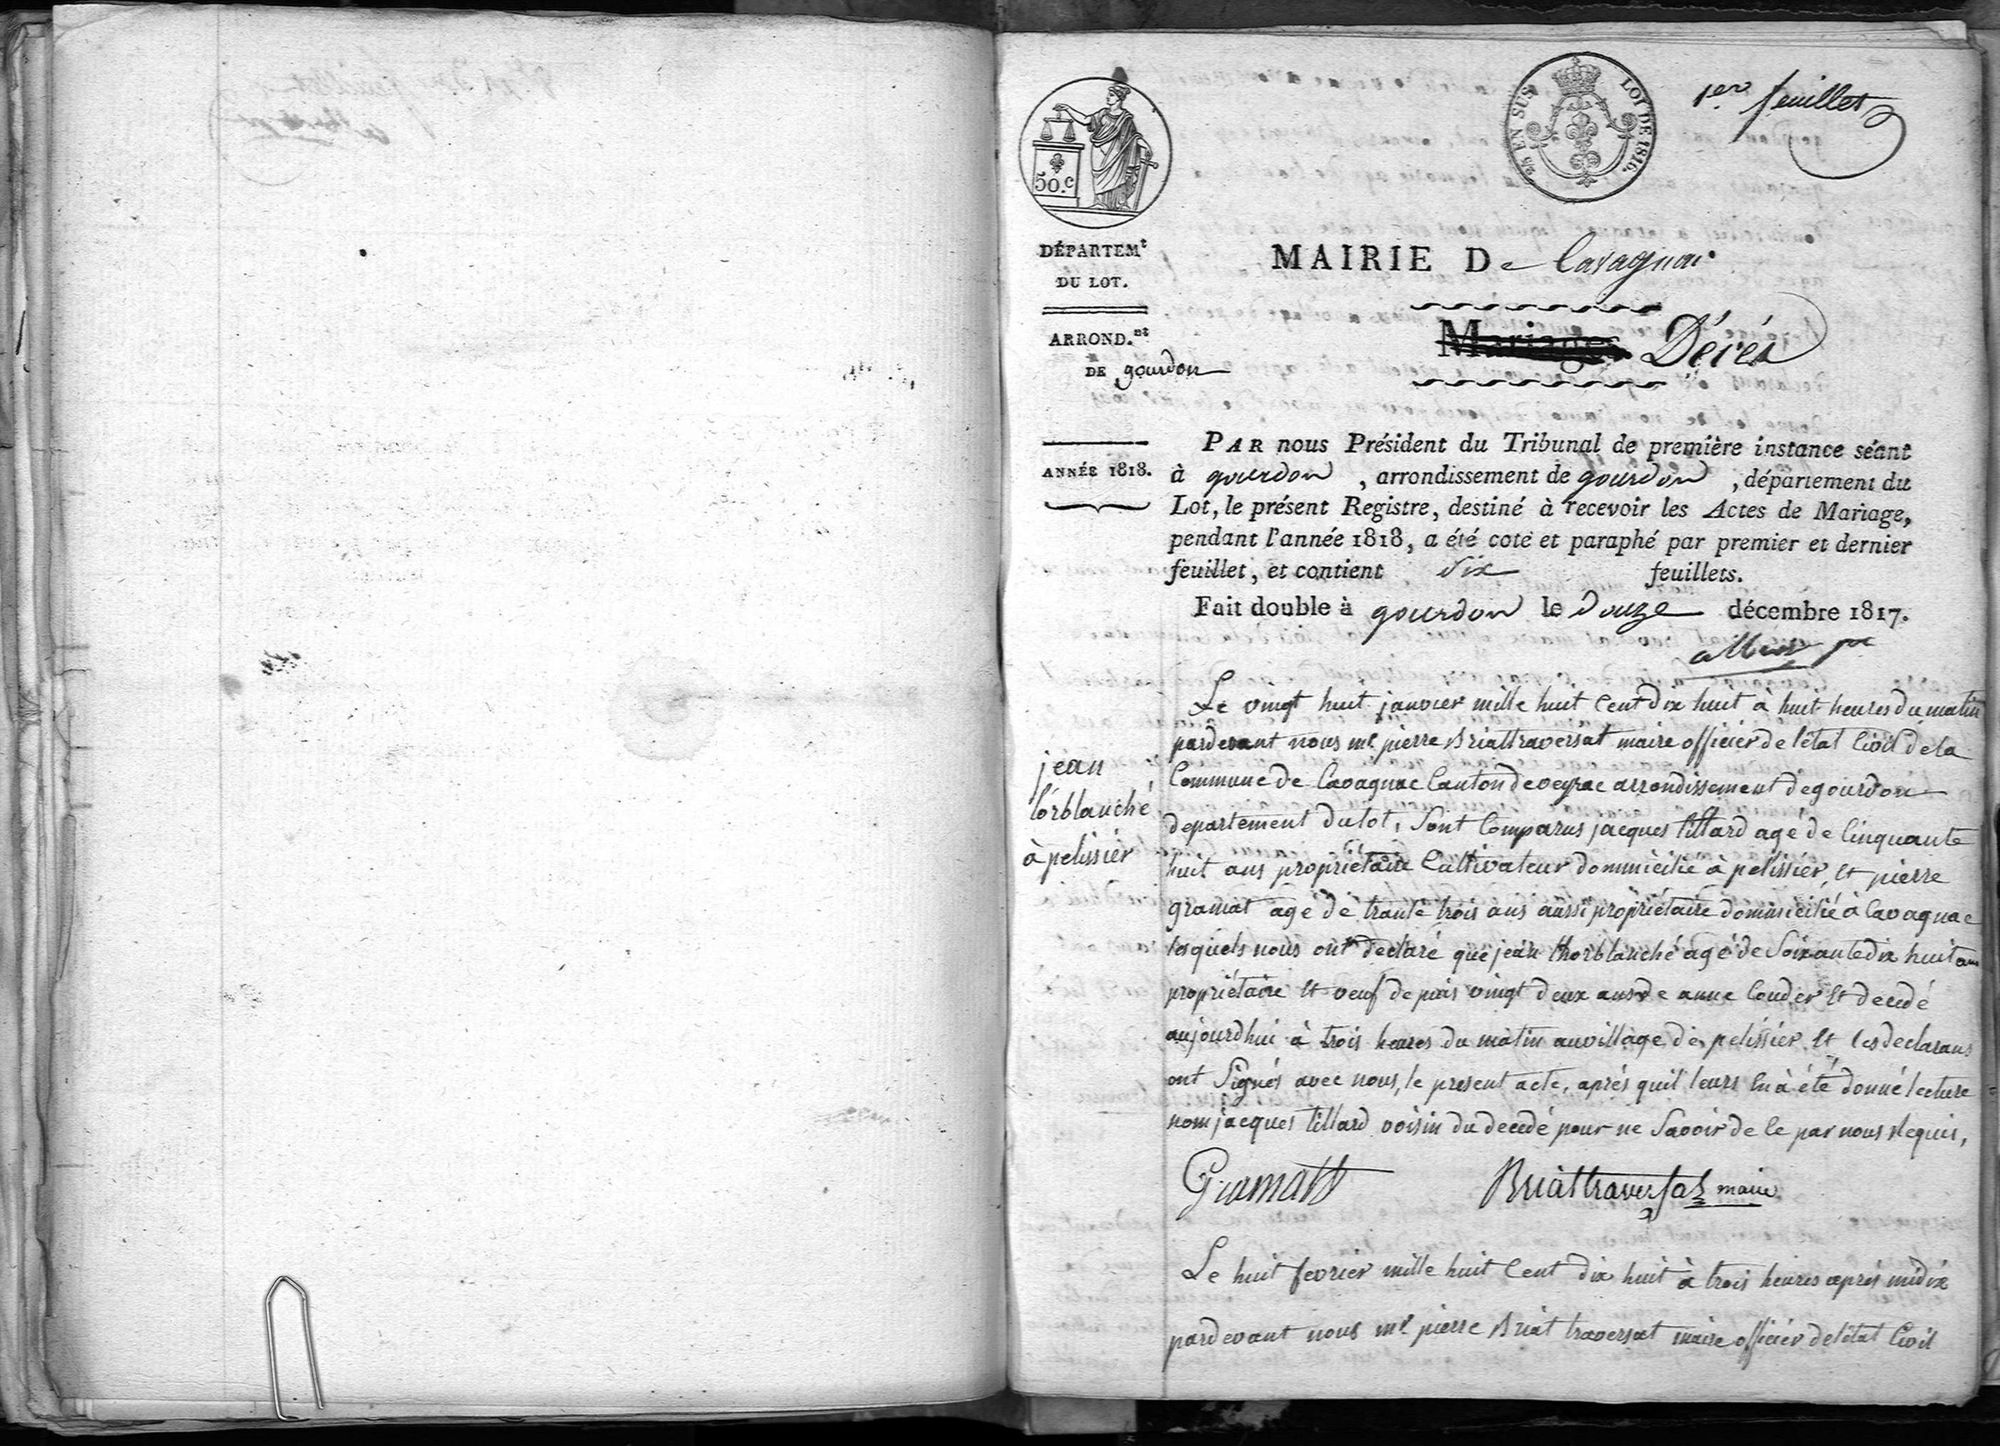 1er feuillet
25 EN SUS
LOI DE 1816.
50.c
DÉPARTEMt
DU LOT.
MAIRIE De Cavagnac
ARROND.nt
DE gourdon
Mariages Décés
ANNÉE 1818.
PAR nous Président du Tribunal de première instance séant
à gourdon, arrondissement de gourdon, département du
Lot, le présent Registre, destiné à recevoir les Actes de Mariage,
pendant l'année 1818, a été coté et paraphé par premier et dernier
feuillet, et contient Six feuillets.
Fait double à gourdon le Douze décembre 1817.
jean
torblanché
à pelissiér
Le vingt huit janvier mille huit Cent dix huit à huit heures du matin
pardevant nous mr pierre Briattraversat maire officiér de l'état Civil de la
Commune de Cavagnac Canton de veyrac arrondissement de gourdon
departement du lot, sont Comparus jacques tillard agé de Cinquante
huit ans propriétaire Cultivateur dommicilié à pelissiér, et pierre
gramat agé de trante trois ans aussi propriétaire domicilié à Cavagnac
lesquels nous ont déclaré que jean thorblanché agé de Soixante dix huit ans
propriétaire et veuf depuis vingt deux ans de anne Couder et decedé
aujourdhui à trois heures du matin au village de pelissiér, et les declarans
ont Signés avec nous, le present acte, aprés quil leurs en à été donné lecture
nom jacques tillard voisin du decedé pour ne Savoir de ce par nous Requis,
Gramatt Briattraversat maire
Le huit fevrier mille huit Cent dix huit à trois heures aprés midix
pardevant nous mr pierre Briat traversat maire officiér de l'état Civil